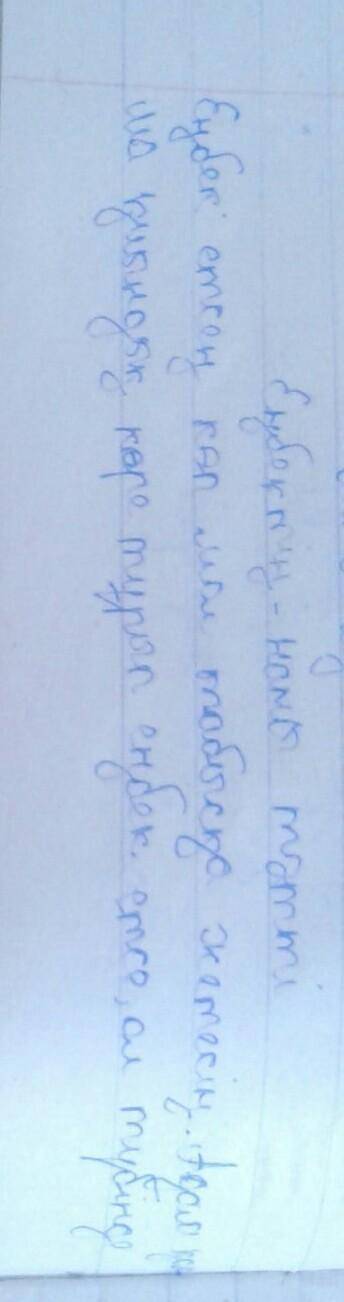 Еңбектің - наны тәтті
Еңбек етсең көп мал табысқа жетесің. Адам қан
ша қиындық көре тұрып еңбек етсе, ол түбінде